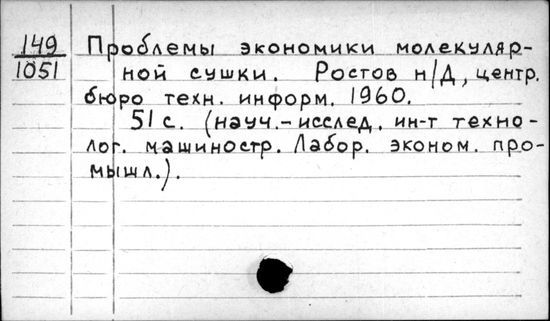 149 Проблемы экономики молекуляр-
1051 ной сушки. Ростов н/Д, центр.
бюро техн. информ. 1960.
51 с. (науч.-исслед. ин-т техно-
лог. машиностр. Лабор. эконом. про-
мышл.).